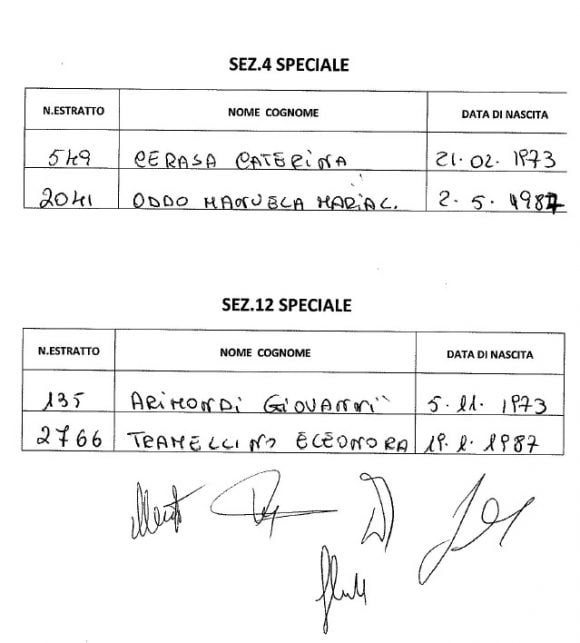 SEZ.4 SPECIALE
N.ESTRATTO NOME COGNOME DATA DI NASCITA
549 CERASA CATERINA 21.02.1973
2041 ODDO MANUELA MARIA C. 2.5.1987
SEZ.12 SPECIALE
N.ESTRATTO NOME COGNOME DATA DI NASCITA
135 ARIMONDI GIOVANNI 5.11.1973
2766 TRAMELLINO ELEONORA 19.1.1987